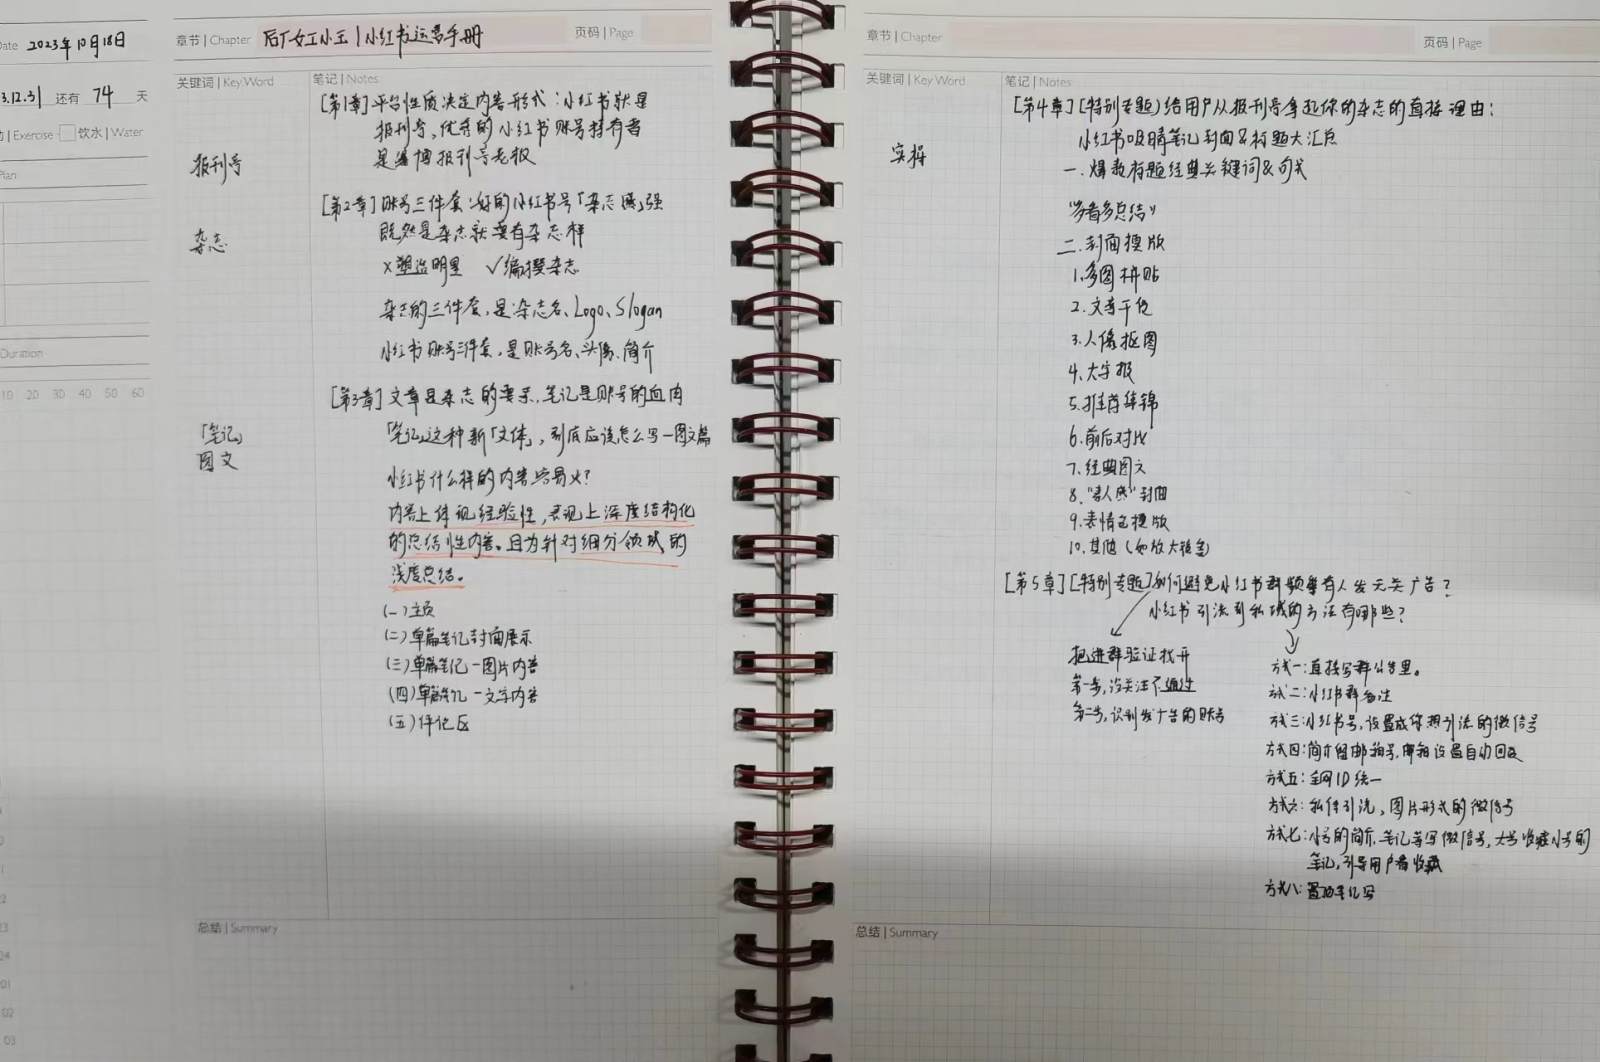 Date 2023年10月18日
3.12.31 还有 74 天
动 | Exercise 饮水 | Water
Plan
Duration
10 20 30 40 50 60
章节 | Chapter 后厂女工小王 | 小红书运营手册 页码 | Page
关键词 | Key Word 笔记 | Notes
[第1章] 平台性质决定内容形式：小红书就是
报刊亭，优秀的小红书账号持有者
是赛博报刊亭老板
报刊亭
[第2章] 账号三件套：好的小红书号「杂志感」强
既然是杂志就要有杂志样
杂志
×塑造明星 ✓编撰杂志
杂志的三件套，是杂志名、Logo、Slogan
小红书账号三件套，是账号名、头像、简介
[第3章] 文章是杂志的要素，笔记是账号的血肉
「笔记」
图文
「笔记」这种新「文体」，到底应该怎么写—图文篇
小红书什么样的内容容易火？
内容上体现经验性，表现上深度结构化
的总结性内容。且为针对细分领域的
浅度总结。
(一) 主页
(二) 单篇笔记封面展示
(三) 单篇笔记—图片内容
(四) 单篇笔记—文字内容
(五) 评论区
总结 | Summary
章节 | Chapter 页码 | Page
关键词 | Key Word 笔记 | Notes
[第4章] [特别专题] 给用户从报刊亭拿起你的杂志的直接理由：
小红书吸睛笔记封面&标题大汇总
实操
一．爆款标题经典关键词&句式
“多看多总结”
二．封面模版
1.多图拼贴
2.文字干货
3.人像抠图
4.大字报
5.推荐集锦
6.前后对比
7.经典图文
8.“素人感”封面
9.表情包模版
10.其他（如放大镜鱼）
[第5章] [特别专题] 如何避免小红书群频繁有人发无关广告？
小红书引流到私域的方法有哪些？
把进群验证打开
第一步，没关注不通过
第二步，识别发广告的账号
方式一：直接写群公告里。
方式二：小红书群备注
方式三：小红书号，设置成你想引流的微信号
方式四：简介留邮箱号，邮箱设置自动回复
方式五：全网ID统一
方式六：私信引流，图片形式的微信号
方式七：小号的简介、笔记等写微信号，大号收藏小号的
笔记，引导用户看收藏
方式八：置顶笔记写
总结 | Summary